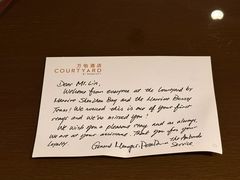 万怡酒店
COURTYARD
Dear Mr. Lin,
Welcome from everyone at the Courtyard by
Marriott Shenzhen Bay and the Marriott Bonvoy
Team! We noticed this is one of your first
stays and we've missed you!
We wish you a pleasant stay and as always,
we are at your assistance. Thank you for your
Loyalty.
General Manager,
Service